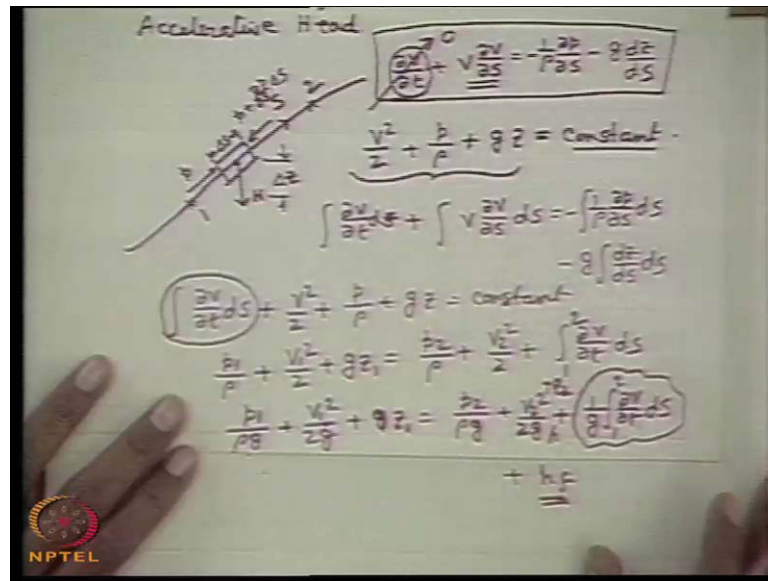 Accelerative Head
∂v/∂t + v ∂v/∂s = -1/ρ ∂p/∂s - g dz/ds
v²/2 + p/ρ + gz = constant.
∫ ∂v/∂t ds + ∫ v ∂v/∂s ds = -∫ 1/ρ ∂p/∂s ds
- g∫ dz/ds ds
∫ ∂v/∂t ds + v²/2 + p/ρ + gz = constant
p1/ρ + v1²/2 + gz1 = p2/ρ + v2²/2 + ∫₁² ∂v/∂t ds
p1/ρg + v1²/2g + gz1 = p2/ρg + v2²/2g + z2 + 1/g ∫₁² ∂v/∂t ds
+ hf
NPTEL